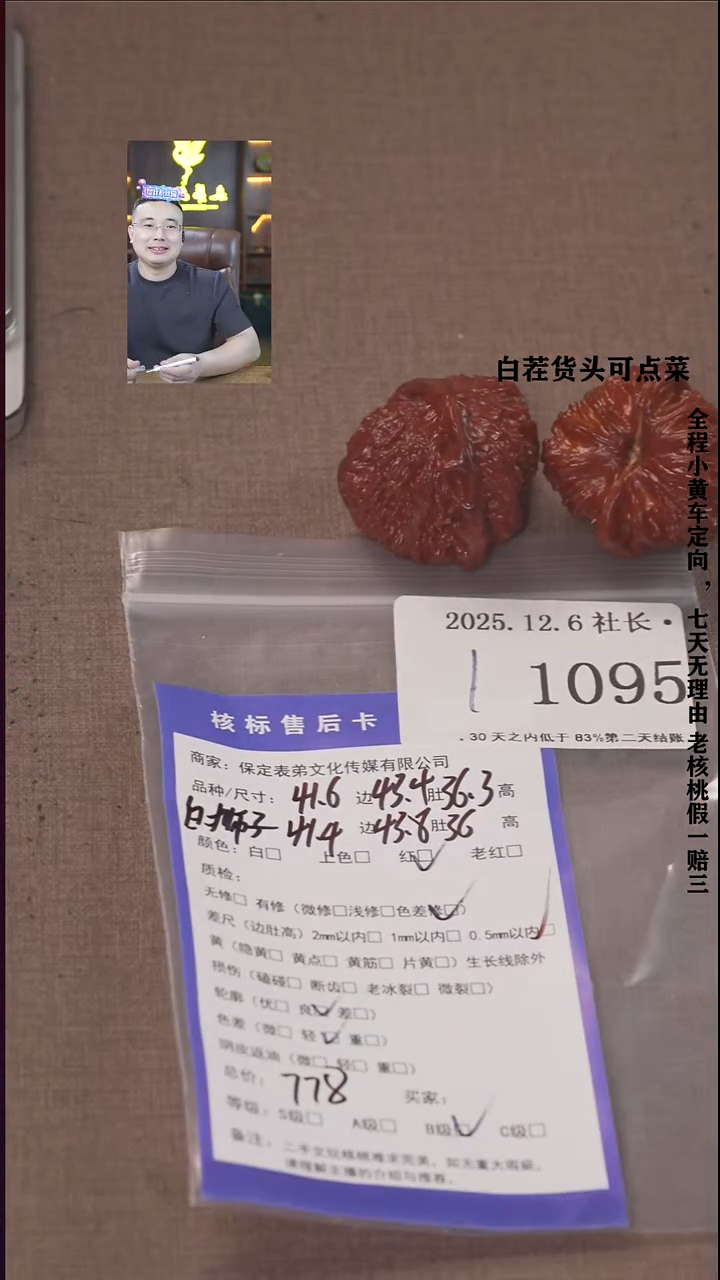 白茬货头可点菜
全程小黄车定向，七天无理由 老核桃假一赔三
2025.12.6 社长·
1095
.30 天之内低于 83%第二天结账
核标售后卡
商家：保定表弟文化传媒有限公司
品种/尺寸：41.6 边43.4肚36.3高
白狮子 41.4 边43.8肚36 高
颜色：白□ 上色□ 红□ 老红□
质检：
无修□ 有修（微修□浅修□色差修□）
差尺（边肚高）2mm以内□ 1mm以内□ 0.5mm以内□
黄（隐黄□ 黄点□ 黄筋□ 片黄□）生长线除外
损伤（磕碰□ 断齿□ 老冰裂□ 微裂□）
轮廓（优□ 良□ 差□）
色差（微□ 轻□ 重□）
阴皮返油（微□ 轻□ 重□）
总价：778 买家：
等级：S级□ A级□ B级□ C级□
备注：二手文玩核桃难求完美，如无重大瑕疵，
请理解主播的介绍与推荐。